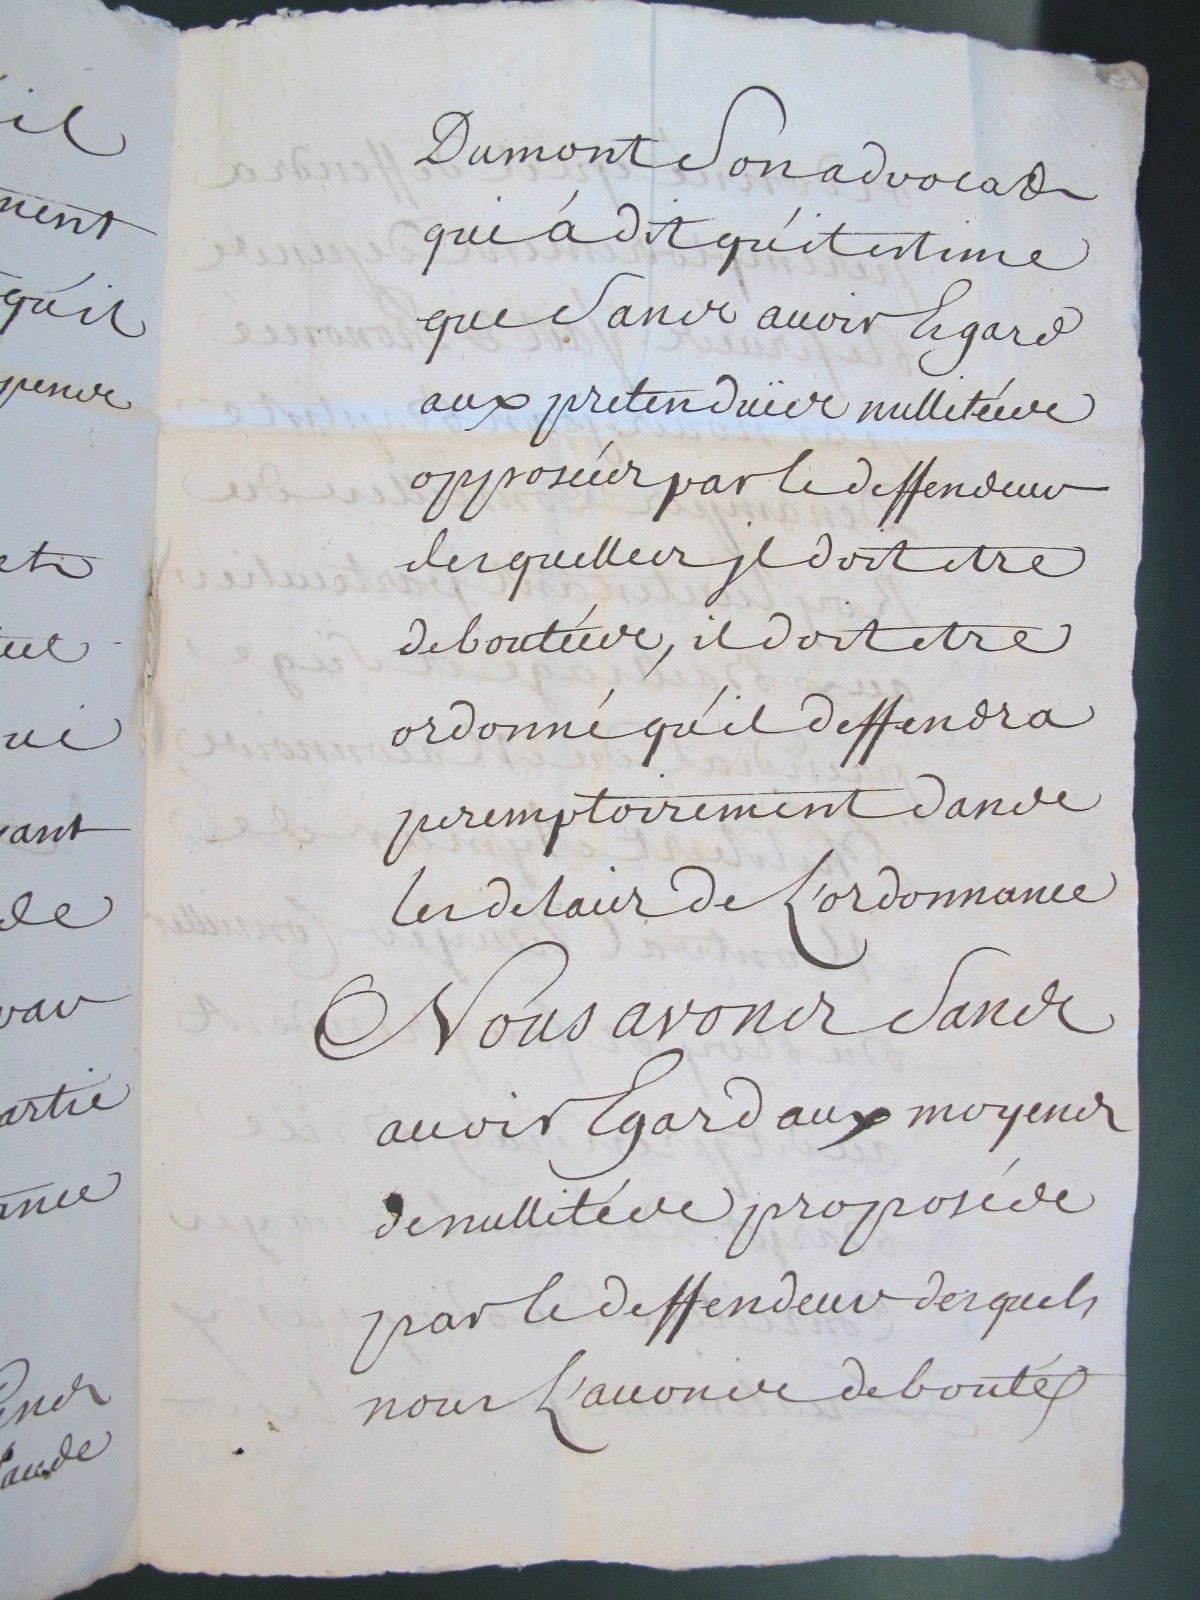 il
ment
qu'il
et
qui
vant
de
par
artie
ance
Dumont Son advocat
qui á dit qu'il estime
que Sans avoir Egard
aux pretenduës nullitées
opposées par le deffendeur
desquelles jl doit etre
deboutées, il doit etre
ordonné qu'il deffendra
peremptoirement dans
les delais de L'ordonnance
Nous avons Sans
avoir Egard aux moyens
de nullitées proposées
par le deffendeur desquels
nous L'avons debouté